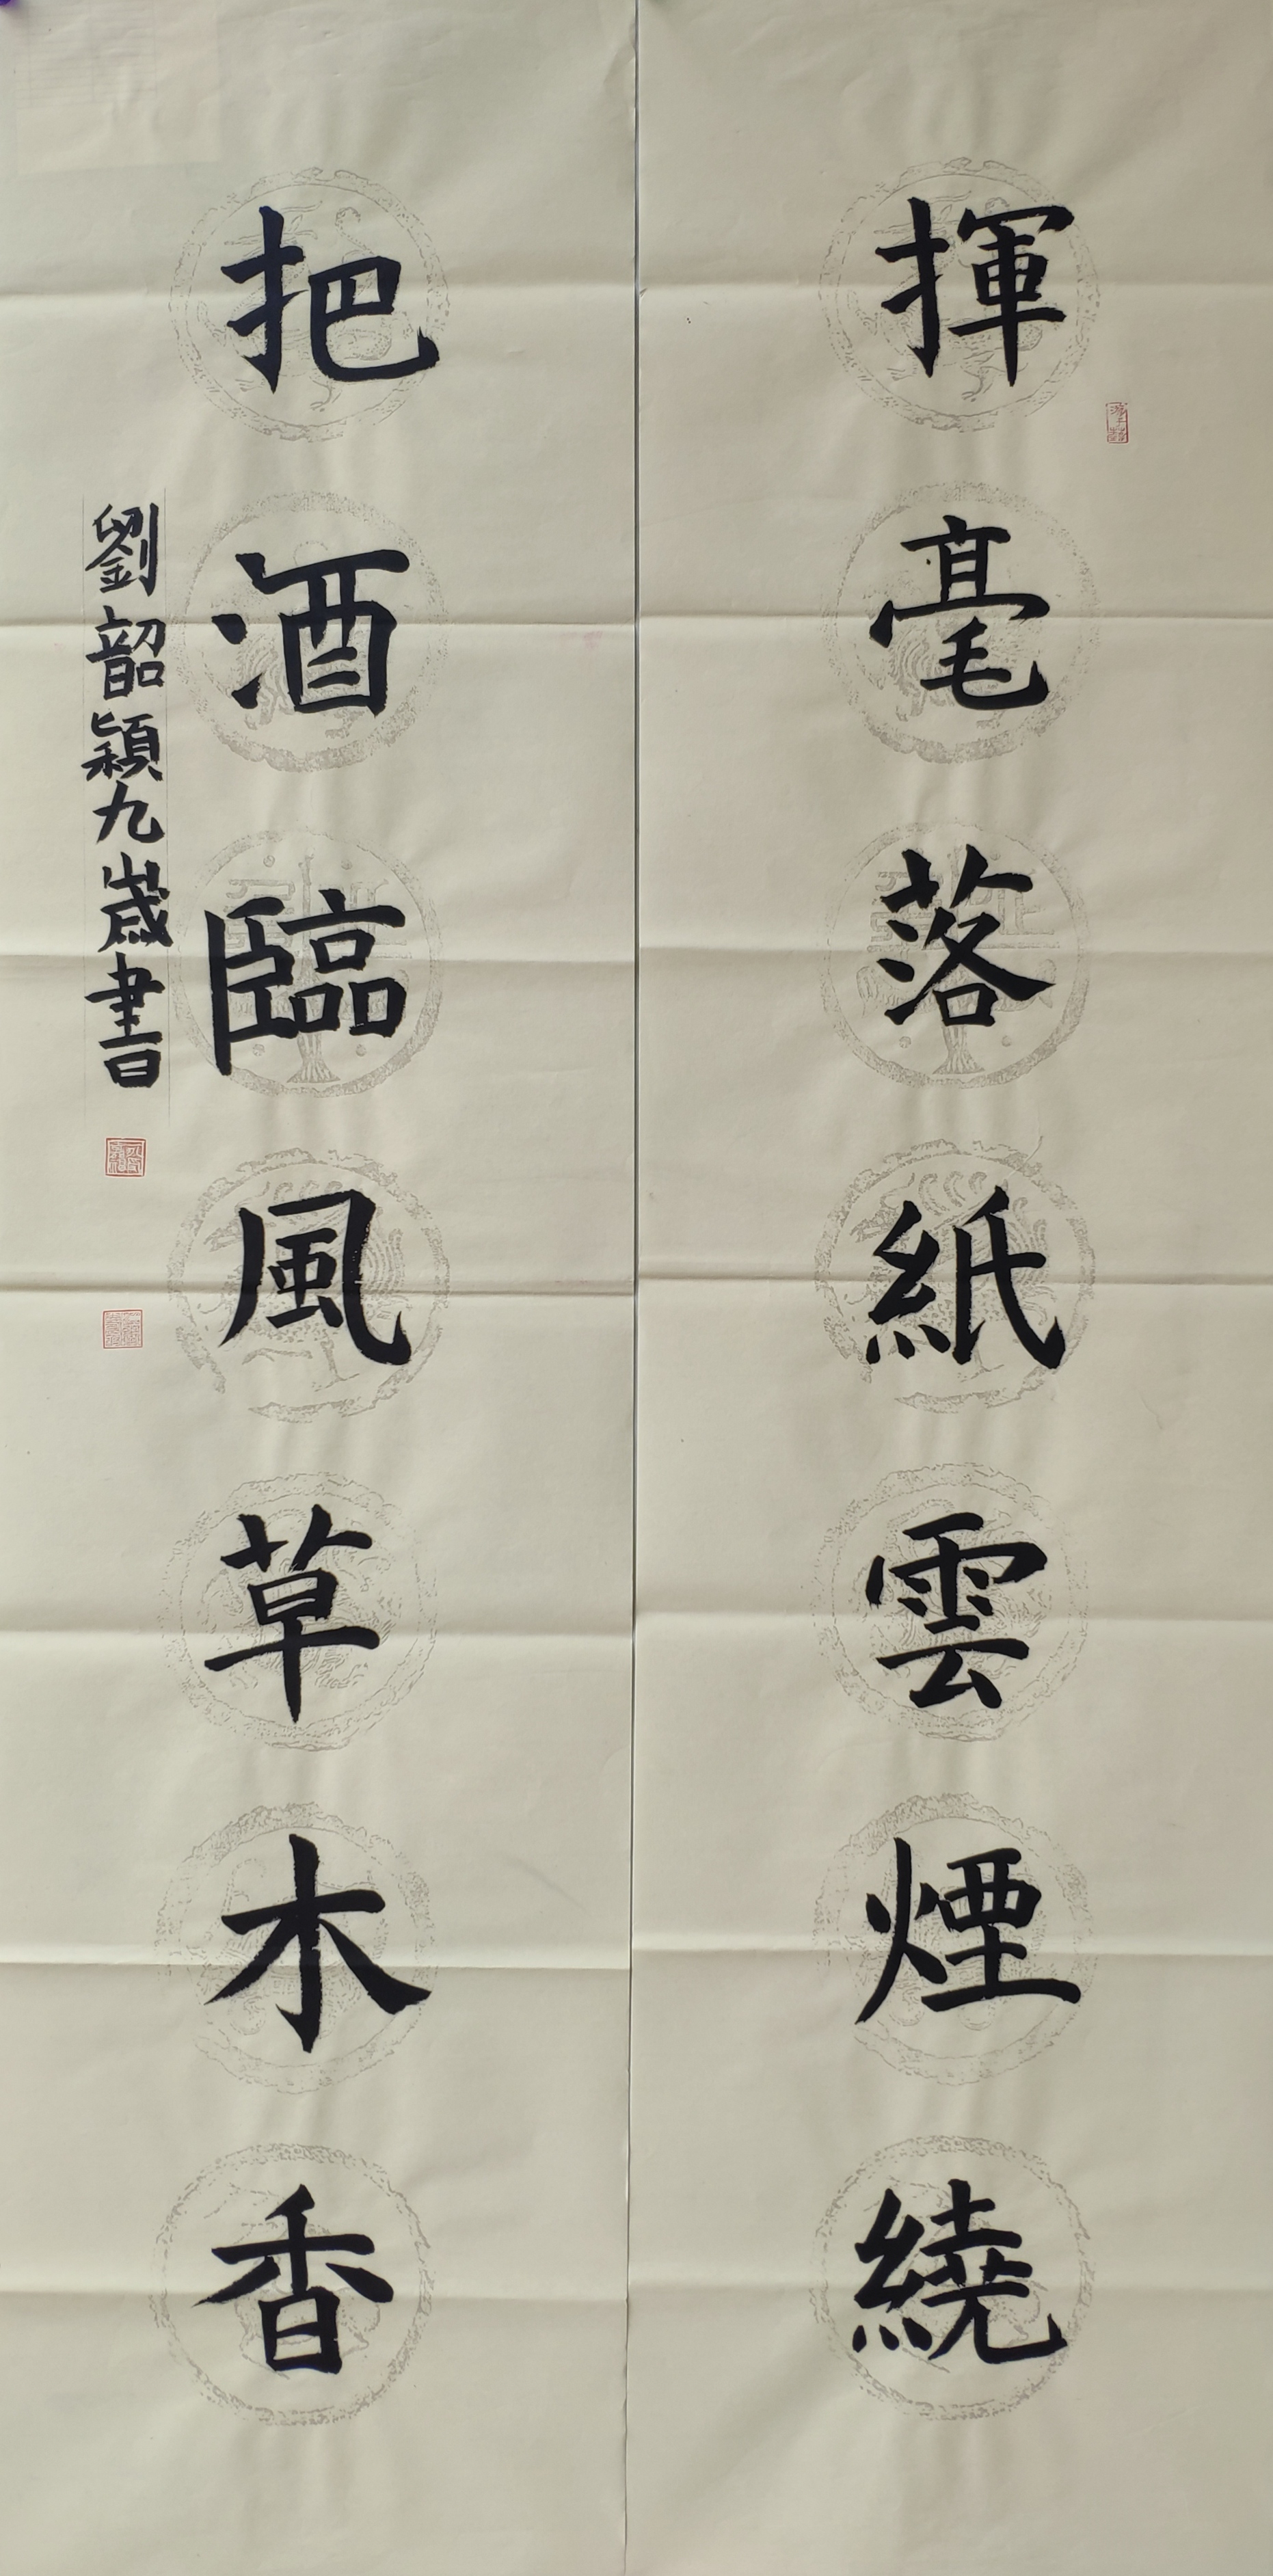 揮毫落紙雲煙繞
把酒臨風草木香
劉韶穎九歲書